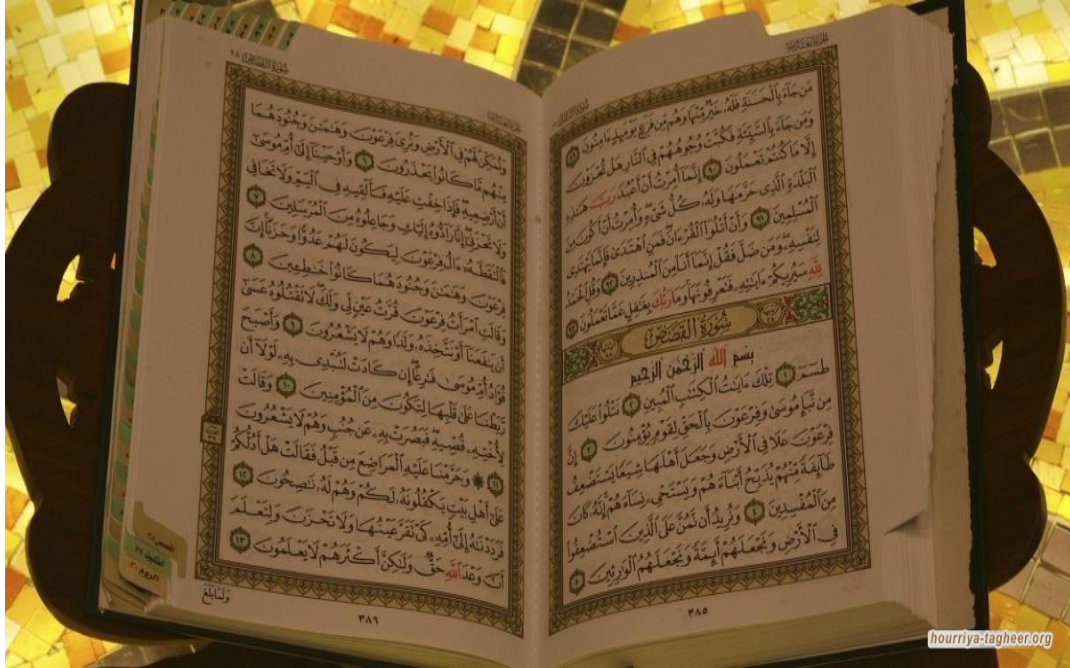 الجزء العشرون
سورة النمل ٢٧
مَن جَآءَ بِٱلْحَسَنَةِ فَلَهُۥ خَيْرٌ مِّنْهَا وَهُم مِّن فَزَعٍ يَوْمَئِذٍ ءَامِنُونَ ٨٩
وَمَن جَآءَ بِٱلسَّيِّئَةِ فَكُبَّتْ وُجُوهُهُمْ فِى ٱلنَّارِ هَلْ تُجْزَوْنَ
إِلَّا مَا كُنتُمْ تَعْمَلُونَ ٩٠ إِنَّمَآ أُمِرْتُ أَنْ أَعْبُدَ رَبَّ هَٰذِهِ
ٱلْبَلْدَةِ ٱلَّذِى حَرَّمَهَا وَلَهُۥ كُلُّ شَىْءٍ وَأُمِرْتُ أَنْ أَكُونَ مِنَ
ٱلْمُسْلِمِينَ ٩١ وَأَنْ أَتْلُوَا۟ ٱلْقُرْءَانَ فَمَنِ ٱهْتَدَىٰ فَإِنَّمَا يَهْتَدِى
لِنَفْسِهِۦ وَمَن ضَلَّ فَقُلْ إِنَّمَآ أَنَا۠ مِنَ ٱلْمُنذِرِينَ ٩٢ وَقُلِ ٱلْحَمْدُ
لِلَّهِ سَيُرِيكُمْ ءَايَٰتِهِۦ فَتَعْرِفُونَهَا وَمَا رَبُّكَ بِغَٰفِلٍ عَمَّا تَعْمَلُونَ ٩٣
سُورَةُ القَصَصِ
بِسْمِ ٱللَّهِ ٱلرَّحْمَٰنِ ٱلرَّحِيمِ
طسٓمٓ ١ تِلْكَ ءَايَٰتُ ٱلْكِتَٰبِ ٱلْمُبِينِ ٢ نَتْلُوا۟ عَلَيْكَ
مِن نَّبَإِ مُوسَىٰ وَفِرْعَوْنَ بِٱلْحَقِّ لِقَوْمٍ يُؤْمِنُونَ ٣ إِنَّ
فِرْعَوْنَ عَلَا فِى ٱلْأَرْضِ وَجَعَلَ أَهْلَهَا شِيَعًا يَسْتَضْعِفُ
طَآئِفَةً مِّنْهُمْ يُذَبِّحُ أَبْنَآءَهُمْ وَيَسْتَحْىِۦ نِسَآءَهُمْ إِنَّهُۥ كَانَ
مِنَ ٱلْمُفْسِدِينَ ٤ وَنُرِيدُ أَن نَّمُنَّ عَلَى ٱلَّذِينَ ٱسْتُضْعِفُوا۟
فِى ٱلْأَرْضِ وَنَجْعَلَهُمْ أَئِمَّةً وَنَجْعَلَهُمُ ٱلْوَٰرِثِينَ ٥
٣٨٥
سورة القصص ٢٨
الجزء العشرون
وَنُمَكِّنَ لَهُمْ فِى ٱلْأَرْضِ وَنُرِىَ فِرْعَوْنَ وَهَٰمَٰنَ وَجُنُودَهُمَا
مِنْهُم مَّا كَانُوا۟ يَحْذَرُونَ ٦ وَأَوْحَيْنَآ إِلَىٰٓ أُمِّ مُوسَىٰٓ
أَنْ أَرْضِعِيهِ فَإِذَا خِفْتِ عَلَيْهِ فَأَلْقِيهِ فِى ٱلْيَمِّ وَلَا تَخَافِى
وَلَا تَحْزَنِىٓ إِنَّا رَآدُّوهُ إِلَيْكِ وَجَاعِلُوهُ مِنَ ٱلْمُرْسَلِينَ ٧
فَٱلْتَقَطَهُۥٓ ءَالُ فِرْعَوْنَ لِيَكُونَ لَهُمْ عَدُوًّا وَحَزَنًا إِنَّ
فِرْعَوْنَ وَهَٰمَٰنَ وَجُنُودَهُمَا كَانُوا۟ خَٰطِـِٔينَ ٨
وَقَالَتِ ٱمْرَأَتُ فِرْعَوْنَ قُرَّتُ عَيْنٍ لِّى وَلَكَ لَا تَقْتُلُوهُ عَسَىٰٓ
أَن يَنفَعَنَآ أَوْ نَتَّخِذَهُۥ وَلَدًا وَهُمْ لَا يَشْعُرُونَ ٩ وَأَصْبَحَ
فُؤَادُ أُمِّ مُوسَىٰ فَٰرِغًا إِن كَادَتْ لَتُبْدِى بِهِۦ لَوْلَآ أَن
رَّبَطْنَا عَلَىٰ قَلْبِهَا لِتَكُونَ مِنَ ٱلْمُؤْمِنِينَ ١٠ وَقَالَتْ
لِأُخْتِهِۦ قُصِّيهِ فَبَصُرَتْ بِهِۦ عَن جُنُبٍ وَهُمْ لَا يَشْعُرُونَ
١١ ۞ وَحَرَّمْنَا عَلَيْهِ ٱلْمَرَاضِعَ مِن قَبْلُ فَقَالَتْ هَلْ أَدُلُّكُمْ
عَلَىٰٓ أَهْلِ بَيْتٍ يَكْفُلُونَهُۥ لَكُمْ وَهُمْ لَهُۥ نَٰصِحُونَ ١٢
فَرَدَدْنَٰهُ إِلَىٰٓ أُمِّهِۦ كَىْ تَقَرَّ عَيْنُهَا وَلَا تَحْزَنَ وَلِتَعْلَمَ
أَنَّ وَعْدَ ٱللَّهِ حَقٌّ وَلَٰكِنَّ أَكْثَرَهُمْ لَا يَعْلَمُونَ ١٣
وَلَمَّا بَلَغَ
٣٨٦
القصص ٢٨
العنكبوت ٢٩
الروم ٣٠
hourriya-tagheer.org